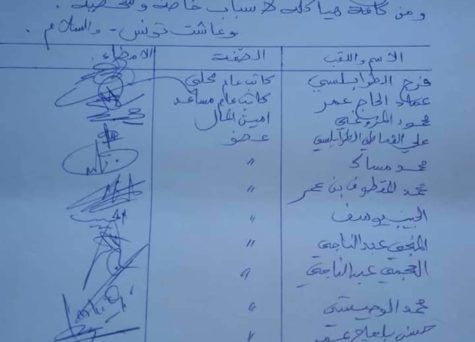 ومن كافة هياكله لأسباب خاصة وشخصية.
وعاشت تونس - والسلام.
الاسم واللقب الصفة الامضاء
فرج الطرابلسي كاتب عام محلي
عماد الحاج عمر كاتب عام مساعد
محمود المزوغي امين المال
علي القماطي الطرابلسي عضو
محمد مساك "
محمد المقطوف بن عمر "
الحبيب يوسف " الحبيب
المنجي عبد الناجي "
العجمي عبد الناجي "
محمد "
حسن "